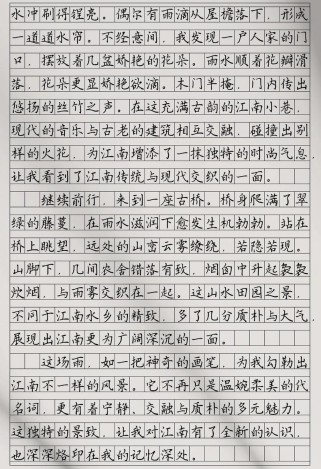 水冲刷得锃亮。偶尔有雨滴从屋檐落下，形成
一道道水帘。不经意间，我发现一户人家的门
口，摆放着几盆娇艳的花朵。雨水顺着花瓣滑
落，花朵更显娇艳欲滴。木门半掩，门内传出
悠扬的丝竹之声。在这充满古韵的江南小巷，
现代的音乐与古老的建筑相互交融，碰撞出别
样的火花，为江南增添了一抹独特的时尚气息，
让我看到了江南传统与现代交织的一面。
继续前行，来到一座古桥。桥身爬满了翠
绿的藤蔓，在雨水滋润下愈发生机勃勃。站在
桥上眺望，远处的山峦云雾缭绕，若隐若现。
山脚下，几间农舍错落有致，烟囱中升起袅袅
炊烟，与雨雾交织在一起。这山水田园之景，
不同于江南水乡的精致，多了几分质朴与大气，
展现出江南更为广阔深沉的一面。
这场雨，如一把神奇的画笔，为我勾勒出
江南不一样的风景。它不再只是温婉柔美的代
名词，更有着宁静、交融与质朴的多元魅力。
这独特的景致，让我对江南有了全新的认识，
也深深烙印在我的记忆深处。